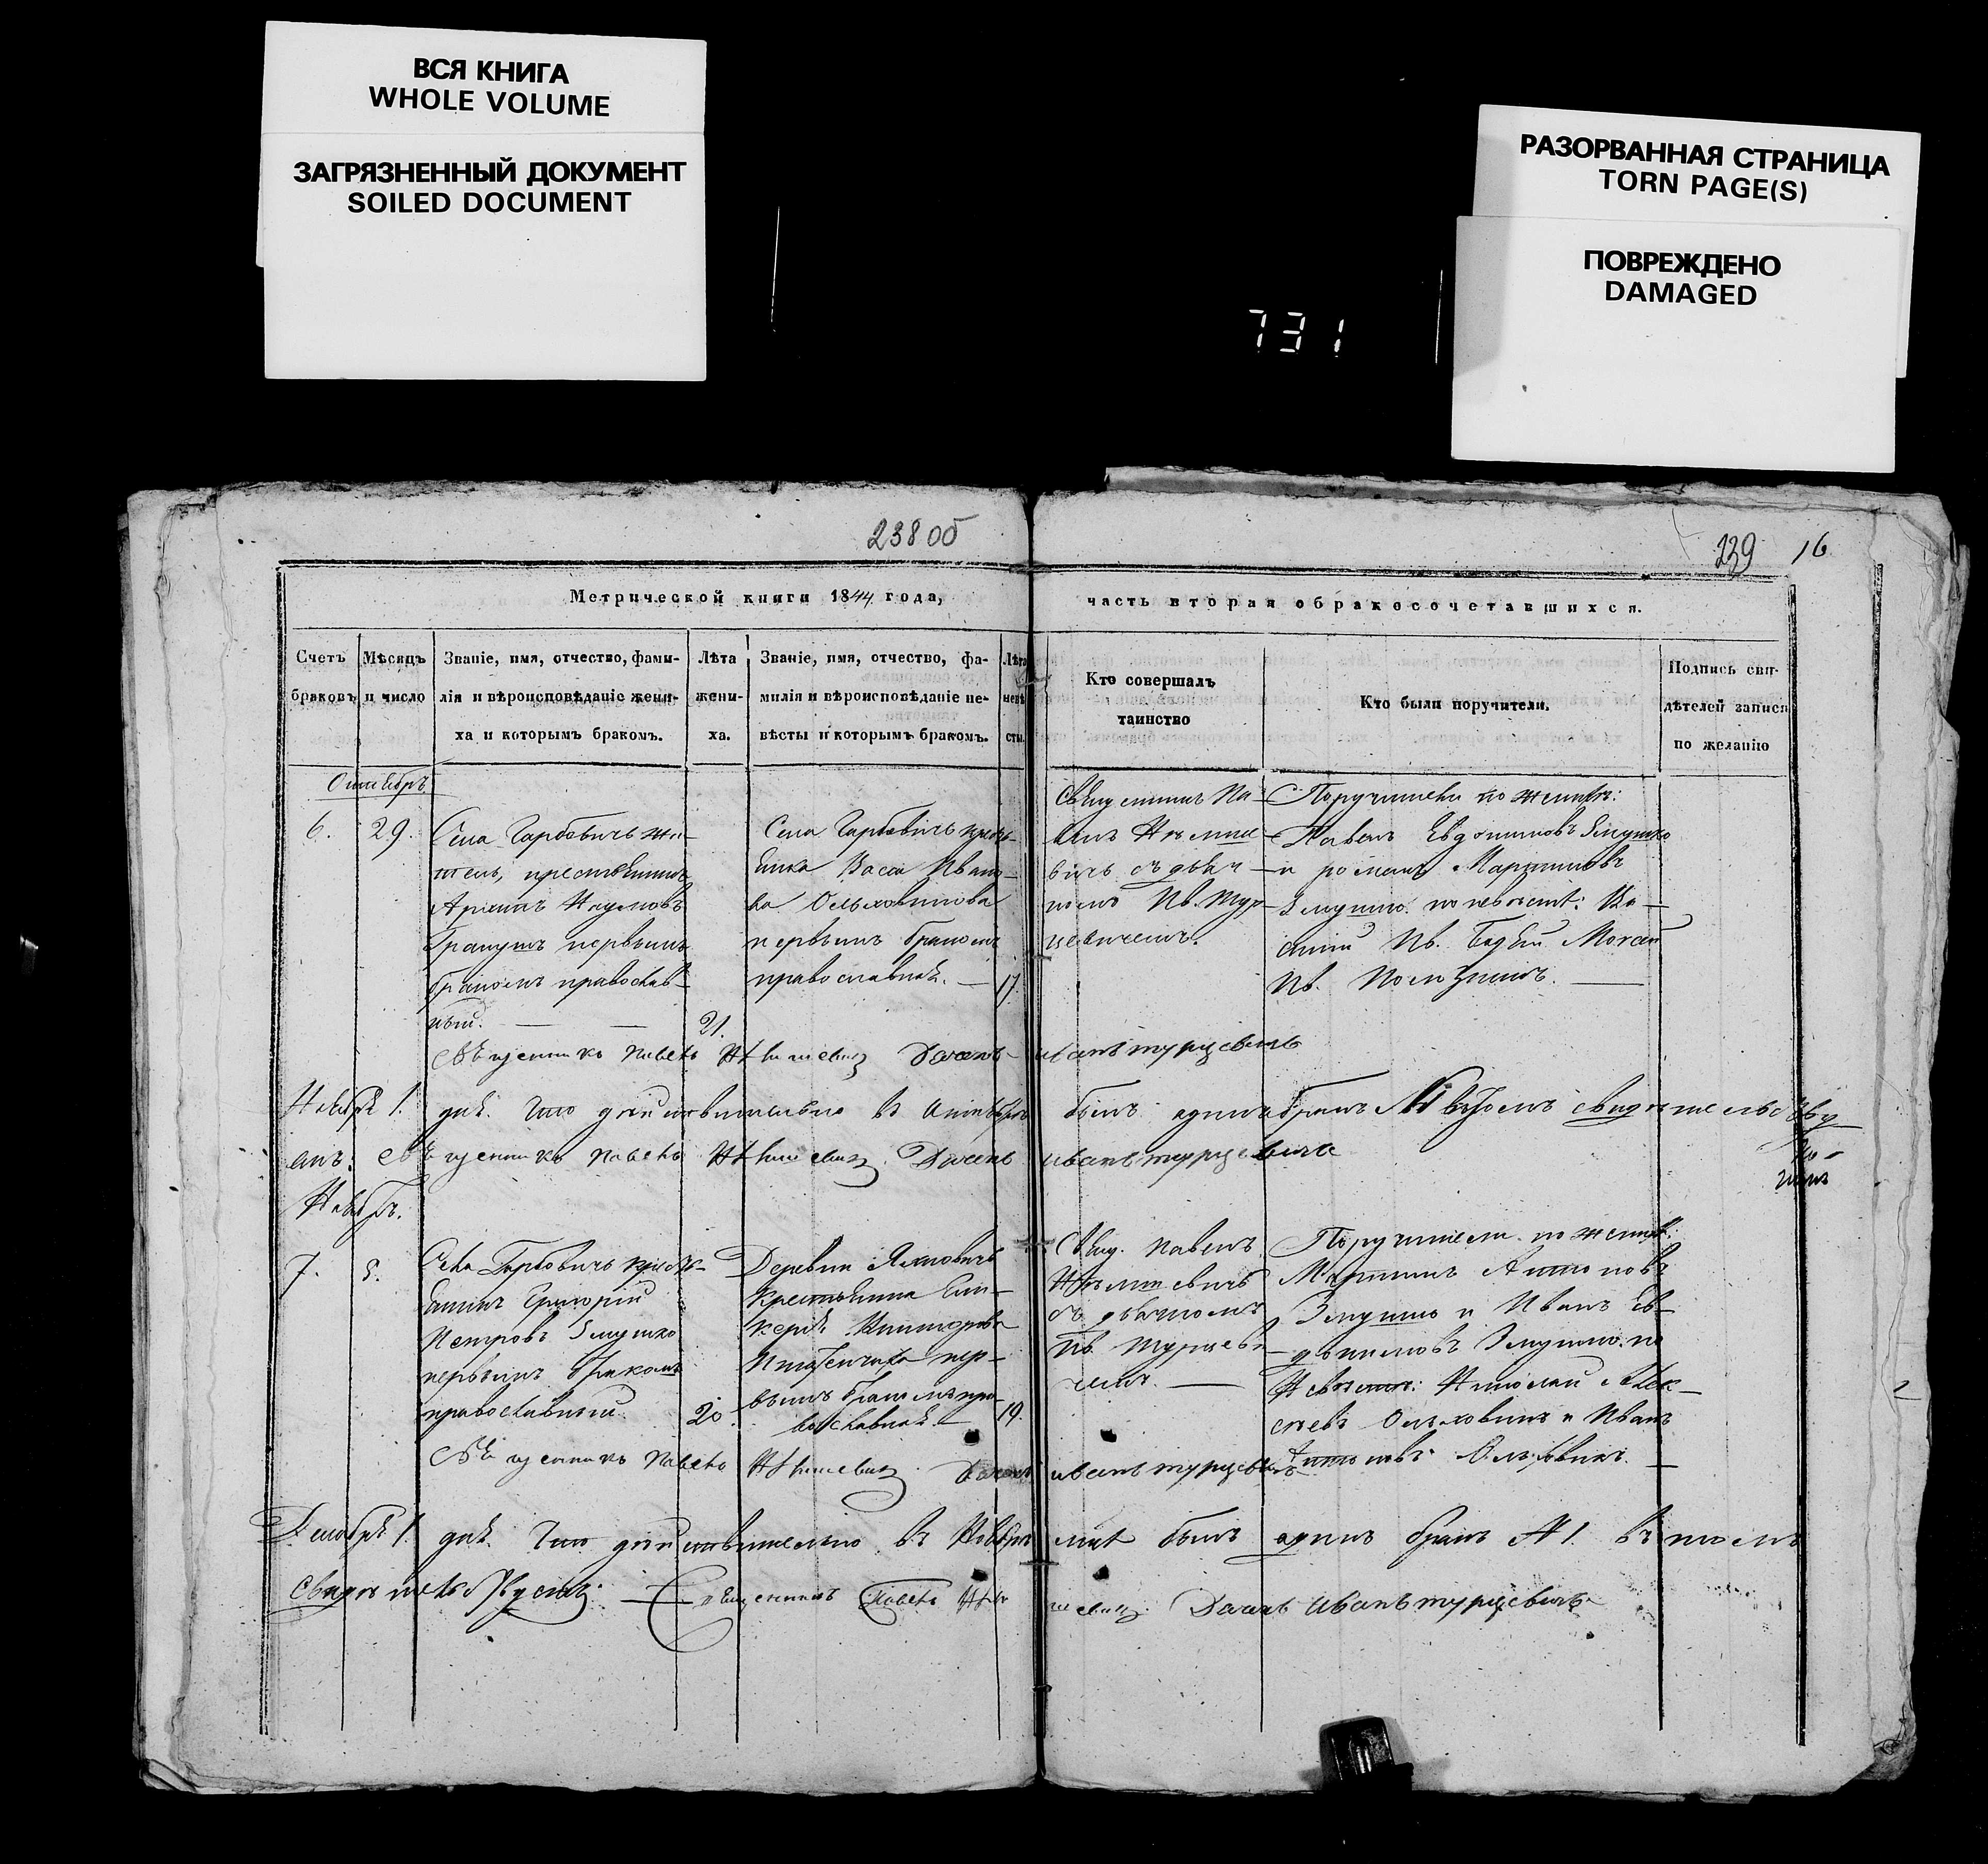 ВСЯ КНИГА
WHOLE VOLUME
ЗАГРЯЗНЕННЫЙ ДОКУМЕНТ
SOILED DOCUMENT
РАЗОРВАННАЯ СТРАНИЦА
TORN PAGE(S)
ПОВРЕЖДЕНО
DAMAGED
731
238 об
239 16
Метрической книги 1844 года,
часть вторая о бракосочетавшихся.
Счетъ
браковъ
Мѣсяцъ
и число
Званіе, имя, отчество, фами-
лія и вѣроисповѣданіе жени-
ха и которымъ бракомъ.
Лѣта
жени-
ха.
Званіе, имя, отчество, фа-
милія и вѣроисповѣданіе не-
вѣсты и которымъ бракомъ.
Лѣта
невѣ
сты.
Кто совершалъ
таинство
Кто были поручители.
Подпись сви-
дѣтелей записи
по желанію
Октябрь
6.
29.
Села Гарбовичъ жи-
тель, крестьянинъ
первымъ
бракомъ православ-
ный.
21.
Села Гарбовичъ кресть-
янка Васса Ивано-
ва Ольховикова
первымъ бракомъ
православная.
17
Священникъ Па-
велъ
съ дьяч-
комъ Ив. Тур-
цевичемъ.
Поручители по женихѣ:
Павелъ Евдокимовъ Змушко
и романъ Мартиновъ
Змушко. по невѣстѣ: Ва-
силий Ив. Мокей
Ив.
Священникъ Павелъ
Дьячекъ Иванъ турцевичъ
Ноября 1. дня. Что дѣйствительно въ Октябрѣ былъ одинъ бракъ въ томъ свидѣтельству
Священникъ Павелъ Дьячекъ Иванъ турцевичъ
Ноябрь.
7.
5.
Села Гарбовичъ кресть-
янинъ Григорій
Петровъ Змушко
первымъ бракомъ
православный.
20.
Деревни
Крестьянка Гли-
керія
пер-
вымъ бракомъ пра-
вославная
19.
Свящ. Павелъ
съ дьячкомъ
Ив. Турцеви-
чемъ.
Поручители по женихѣ:
Мартинъ Антоновъ
Змушко и Иванъ Ев-
докимовъ Змушко. по
Невѣстѣ: Николай Алек-
сѣевъ Ольховикъ и Иванъ
Антоновъ Ольховикъ.
Священникъ Павелъ
Дьячекъ Иванъ турцевичъ
Декабря 1. дня. Что дѣйствительно въ Ноябрѣ мѣс. былъ одинъ бракъ № 1. въ томъ
свидѣтельствуемъ. Священникъ Павелъ
Дьячекъ Иванъ турцевичъ